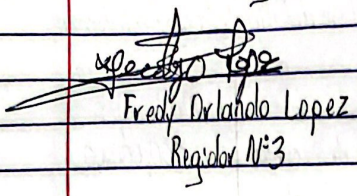 Fredy Orlando Lopez
Regidor N:3